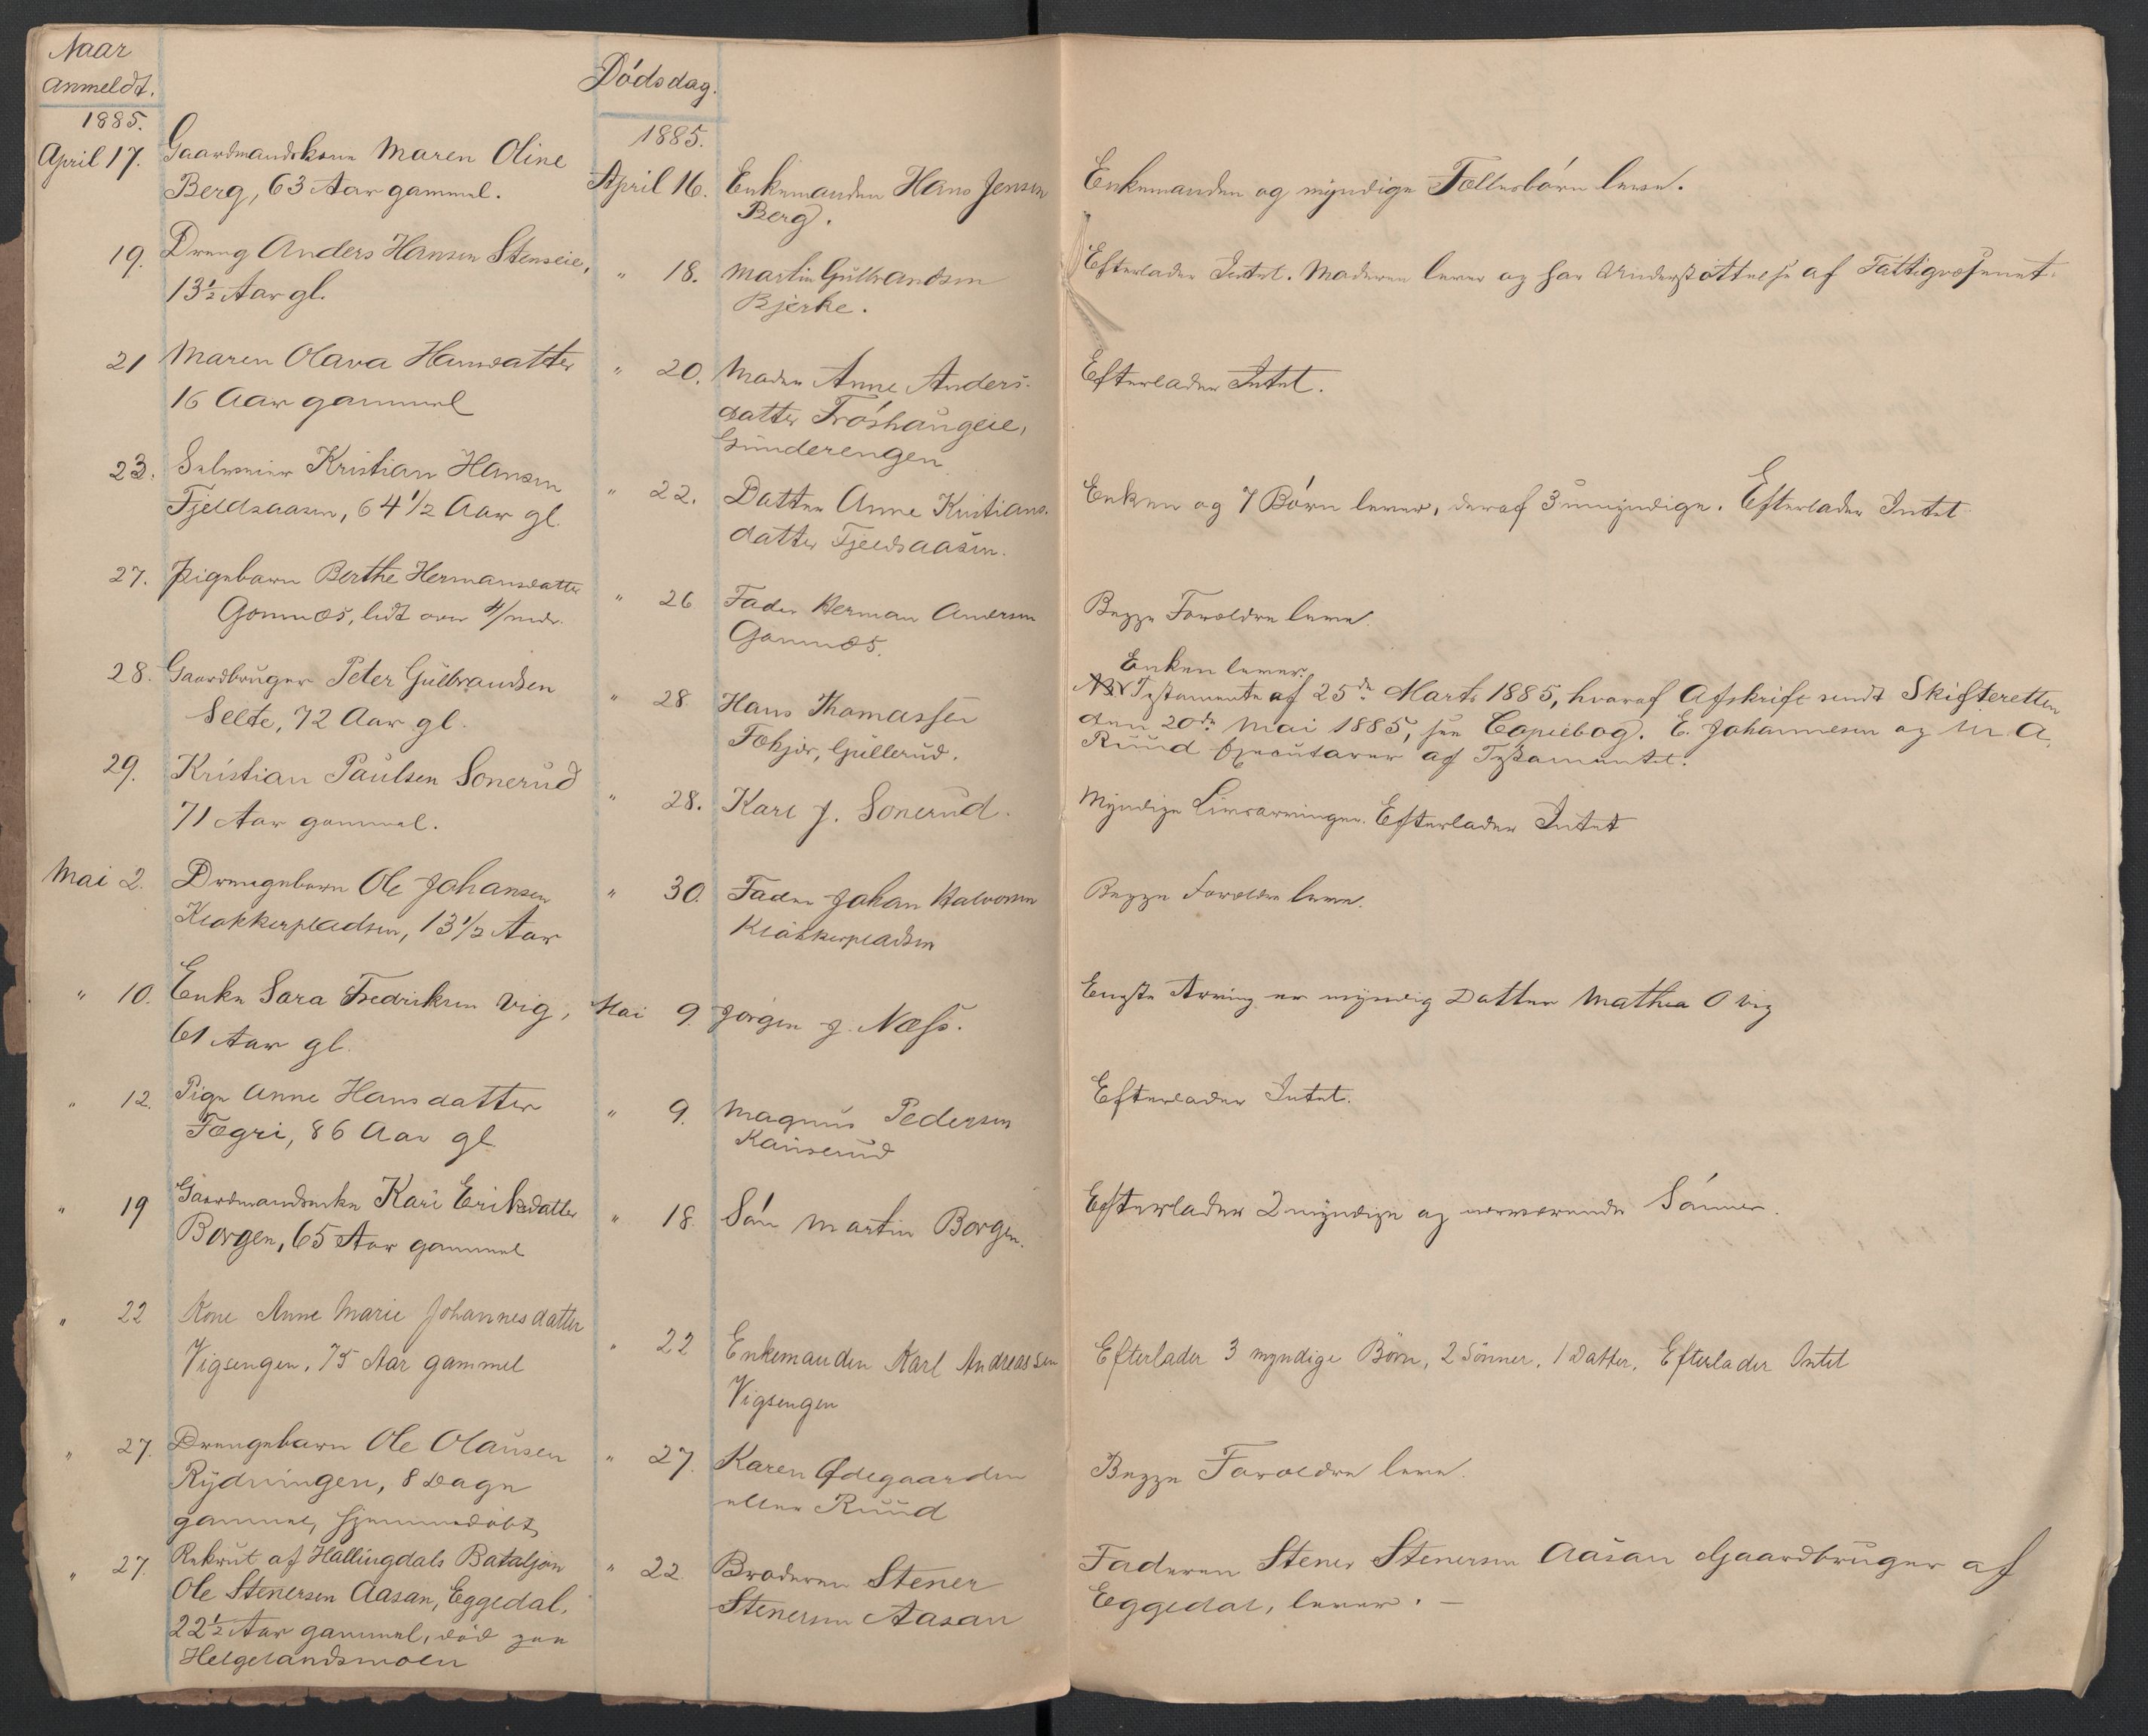 Naar
anmeldt.
Dödsdag.
1885.
1885.
April 17.
Gaardmandskone Maren Oline
Berg, 63 Aar gammel.
April 16.
Enkemanden Hans Jensen
Berg.
Enkemanden og myndige Fællesbörn leve.
19.
Dreng Anders Hansen Stenseie,
13½ Aar gl.
" 18.
Martin Gulbrandsen
Bjerke.
Efterlader Intet. Moderen lever og har Understöttelse af Fattigvæsenet.
21
Maren Olava Hansdatter
16 Aar gammel
" 20.
Moder Anne Anders-
datter Fröshaugeie,
Gunderengen
Efterlader Intet.
23.
Selveier Kristian Hansen
Fjeldsaasen, 64 1/2 Aar gl.
" 22.
Datter Anne Kristians-
datter Fjeldsaasen.
Enken og 7 Börn lever, deraf 3 umyndige. Efterlader Intet
27.
Pigebarn Berthe Hermansdatter
Gomnæs, lidt over
" 26
Fader Herman Andersen
Gomnæs.
Begge Forældre leve.
28.
Gaardbruger Peter Gulbrandsen
Selte, 72 Aar gl.
" 28.
Hans Thomassen
Fokjær, Gullerud.
Enken lever.
NB Testamente af 25de Marts 1885, hvoraf Afskrift sendt Skifteretten
den 20de Mai 1885, see Copiebog. E. Johannesen og M A.
Ruud Executorer af Testamentet.
29.
Kristian Paulsen Sonerud
71 Aar gammel.
" 28.
Karl J. Sonerud.
Myndige Livsarvinger. Efterlader Intet
Mai 2.
Drengebarn Ole Johansen
Klokkerpladsen, 13 1/2 Aar
" 30.
Fader Johan Halvorsen
Klokkerpladsen
Begge Forældre leve.
" 10.
Enke Sara Fredriksen Vig,
61 Aar gl.
Mai 9.
Jörgen J. Næss.
Eneste Arving er myndig Datter Mathea O Vig
" 12.
Pige Anne Hansdatter
Fægri, 86 Aar gl.
" 9.
Magnus Pedersen
Kauserud
Efterlader Intet.
" 19
Gaardmandsenke Kari Eriksdatter
Borgen, 65 Aar gammel
" 18
Sön Martin Borgen.
Efterlader 2 myndige og nærværende Sönner.
" 22
Kone Anne Marie Johannesdatter
Vigsengen, 75 Aar gammel
" 22
Enkemanden Karl Andreassen
Vigsengen
Efterlader 3 myndige Börn, 2 Sönner, 1 Datter. Efterlader Intet
" 27.
Drengebarn Ole Olausen
Rydningen, 8 Dage
gammel, hjemmedöbt
" 27.
Karen Ödegaarden
eller Ruud
Begge Forældre leve.
" 27.
Rekrut af Hallingdals Bataljon
Ole Stenersen Aasan, Eggedal,
22½ Aar gammel, död paa
Helgelandsmoen
" 22.
Broderen Stener
Stenersen Aasan
Faderen Stener Stenersen Aasan Gaardbruger af
Eggedal, lever. —